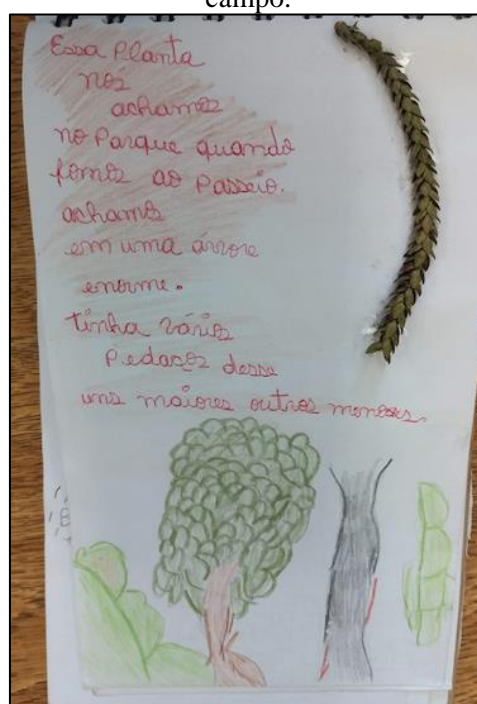 campo.
Essa Planta
nós
achamos
no Parque quando
fomos ao Passeio.
achamos
em uma árvore
enorme.
tinha vários
Pedaços dessa
uns maiores outros menores.